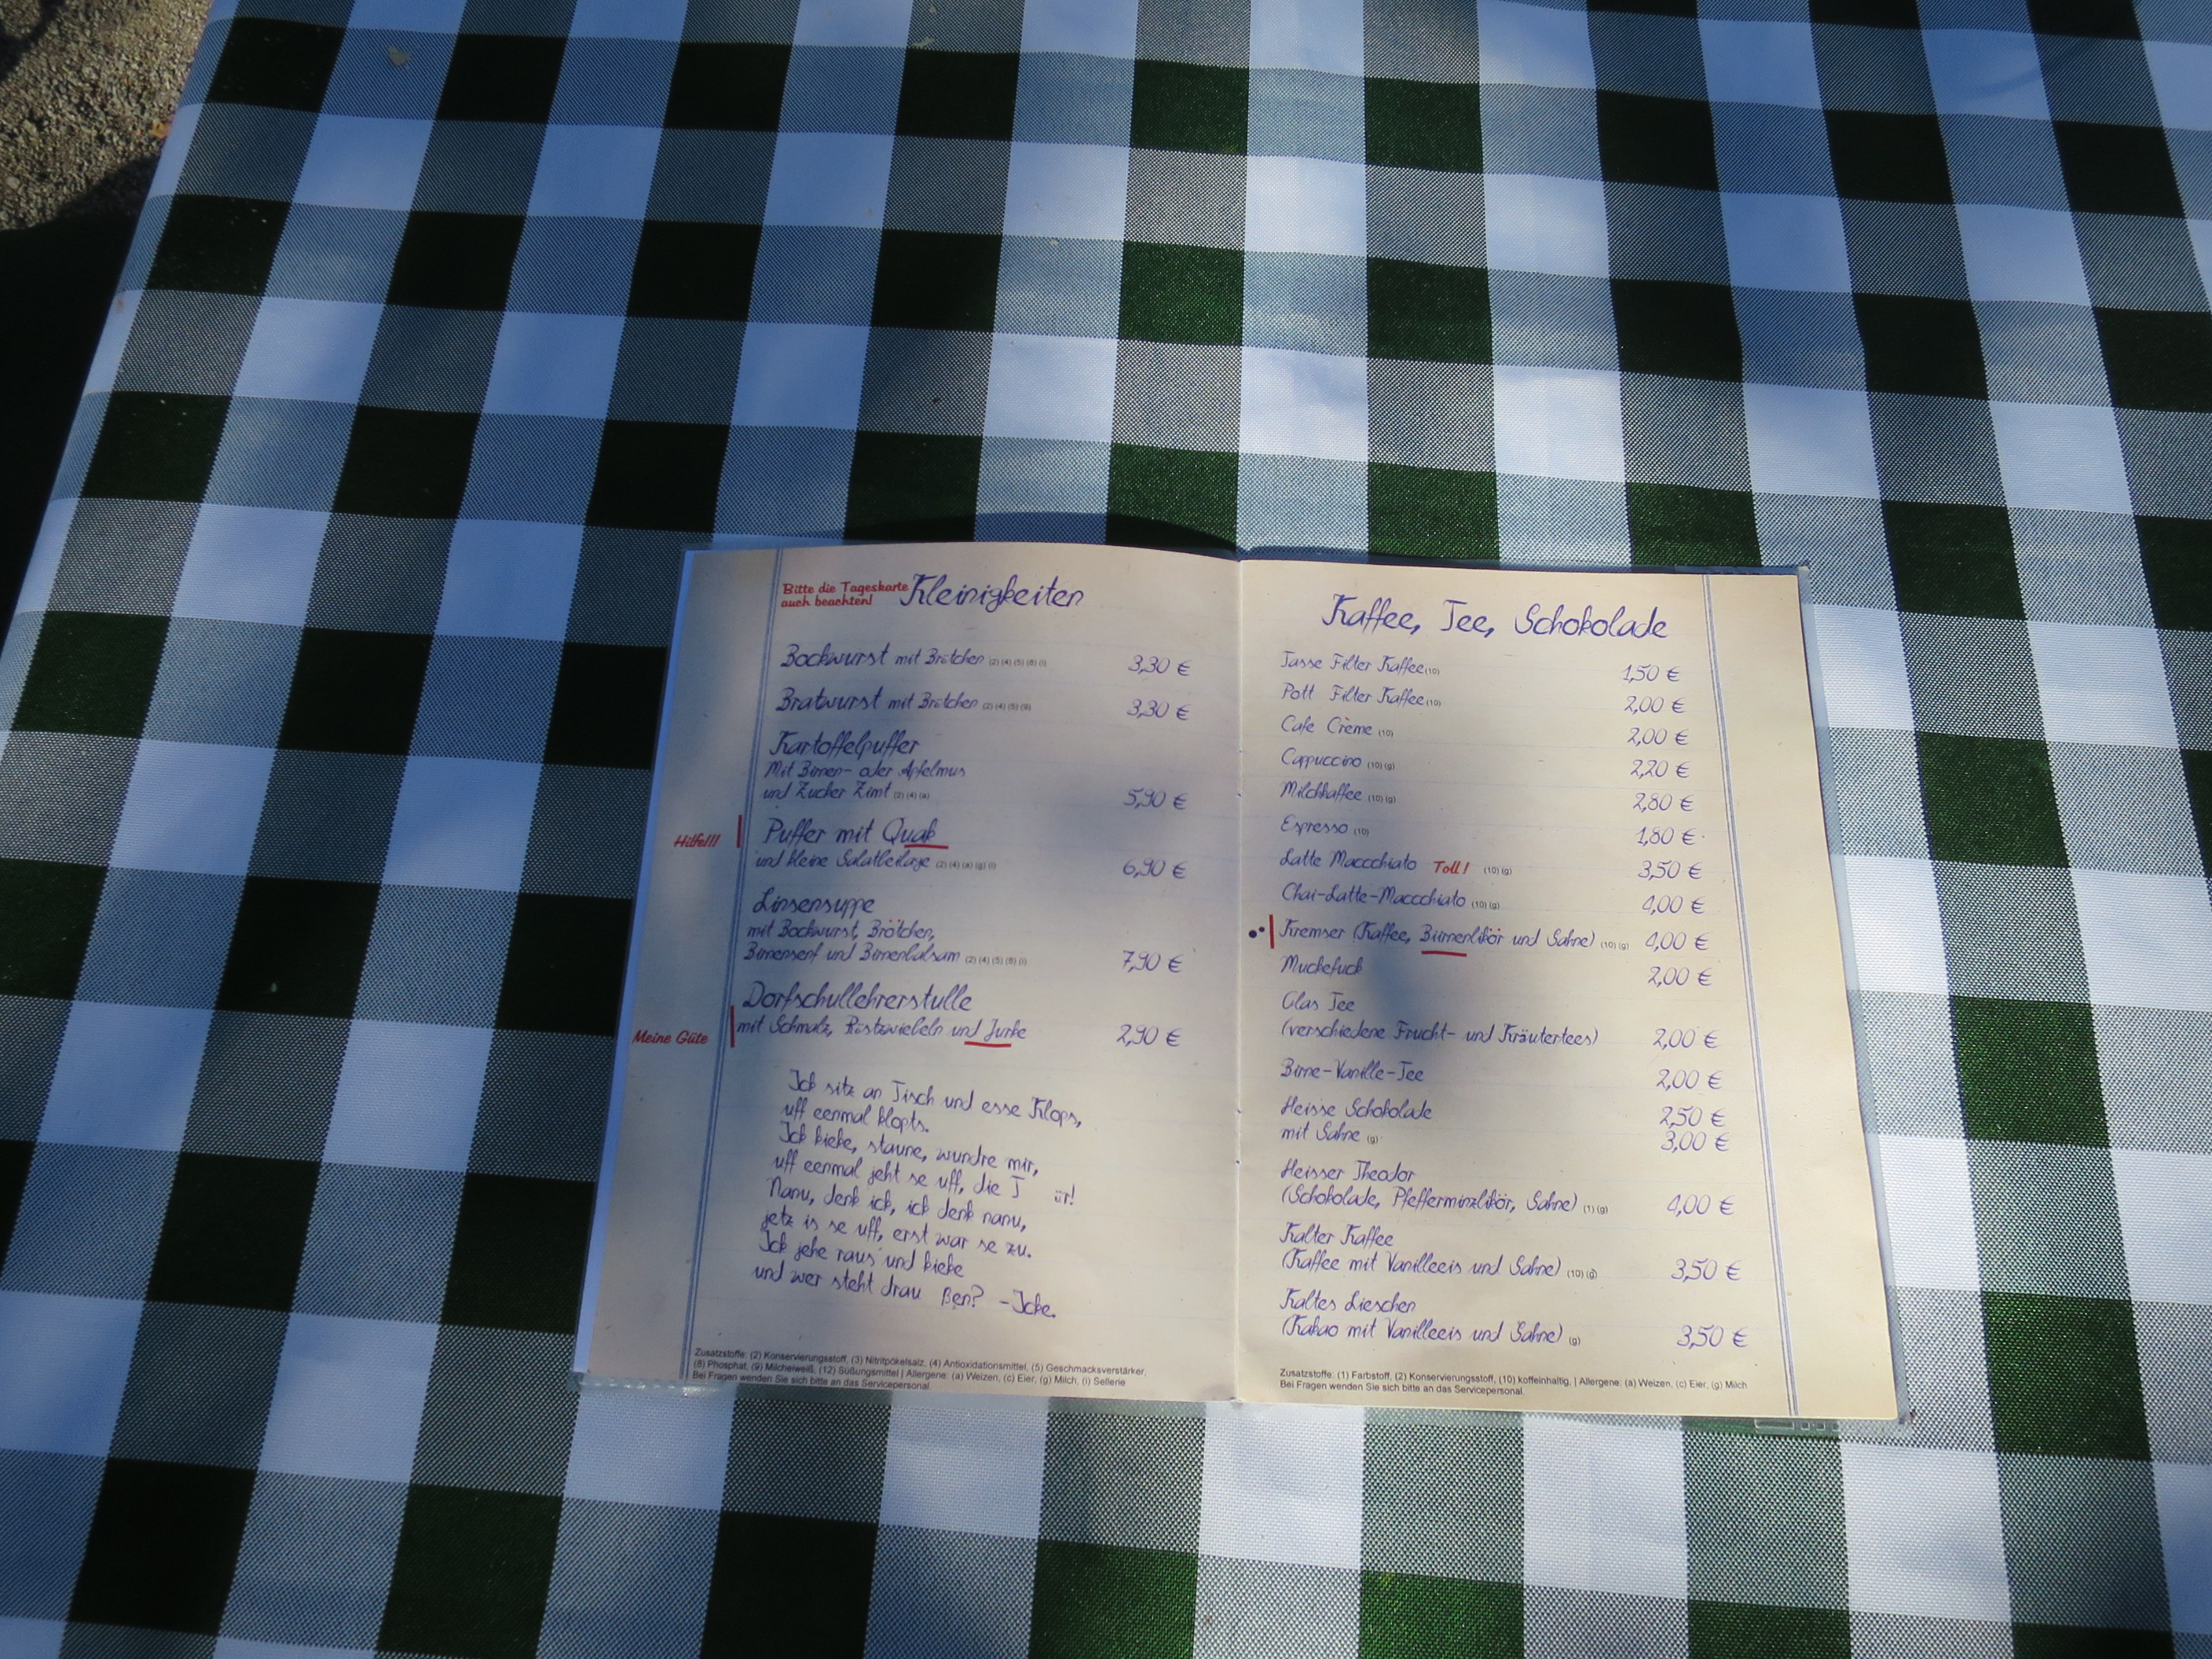 Bitte die Tageskarte
auch beachten!
Kleinigkeiten
Bockwurst mit Brötchen (2) (4) (5) (8) (i) 3,30 €
Bratwurst mit Brötchen (2) (4) (5) (9) 3,30 €
Kartoffelpuffer
Mit Birnen- oder Apfelmus
und Zucher Zimt (2) (4) (a) 5,90 €
Hilfe!!! Puffer mit Quak
und kleine Salatbeilage (2) (4) (a) (g) (i) 6,90 €
Linsensuppe
mit Bockwurst, Brötchen,
Birnensenf und Birnenbalsam (2) (4) (5) (8) (i) 7,90 €
Dorfschullehrerstulle
Meine Güte mit Schmalz, Röstzwiebeln und Jurke 2,90 €
Ick sitz an Tisch und esse Klops,
uff eenmal klopts.
Ick kieke, staune, wundre mir,
uff eenmal jeht se uff, die T ür!
Nanu, denk ick, ick denk nanu,
jetz is se uff, erst war se zu.
Ick jehe raus' und kieke
und wer steht drau ßen? -Icke.
Zusatzstoffe: (2) Konservierungsstoff, (3) Nitritpökelsalz, (4) Antioxidationsmittel, (5) Geschmacksverstärker,
(8) Phosphat, (9) Milcheiweiß, (12) Süßungsmittel | Allergene: (a) Weizen, (c) Eier, (g) Milch, (i) Sellerie
Bei Fragen wenden Sie sich bitte an das Servicepersonal.
Kaffee, Tee, Schokolade
Tasse Filter Kaffee (10) 1,50 €
Pott Filter Kaffee (10) 2,00 €
Cafe Crème (10) 2,00 €
Cappuccino (10) (g) 2,20 €
Milchkaffee (10) (g) 2,80 €
Espresso (10) 1,80 €
Latte Maccchiato Toll! (10) (g) 3,50 €
Chai-Latte-Maccchiato (10) (g) 4,00 €
Kremser (Kaffee, Birnenlikör und Sahne) (10) (g) 4,00 €
Muckefuck 2,00 €
Glas Tee
(verschiedene Frucht- und Kräutertees) 2,00 €
Birne-Vanille-Tee 2,00 €
Heisse Schokolade 2,50 €
mit Sahne (g) 3,00 €
Heisser Theodor
(Schokolade, Pfefferminzlikör, Sahne) (1) (g) 4,00 €
Kalter Kaffee
(Kaffee mit Vanilleeis und Sahne) (10) (g) 3,50 €
Kaltes Lieschen
(Kakao mit Vanilleeis und Sahne) (g) 3,50 €
Zusatzstoffe: (1) Farbstoff, (2) Konservierungsstoff, (10) koffeinhaltig, | Allergene: (a) Weizen, (c) Eier, (g) Milch
Bei Fragen wenden Sie sich bitte an das Servicepersonal.